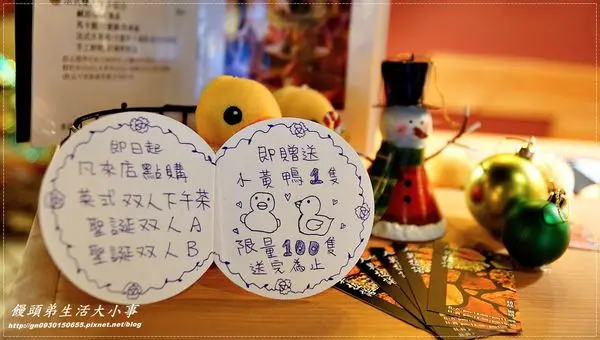 即日起
凡來店點購
英式双人下午茶
聖誕双人A
聖誕双人B
即贈送
小黃鴨1隻
限量100隻
送完為止
饅頭弟生活大小事
http://gn0930150655.pixnet.net/blog